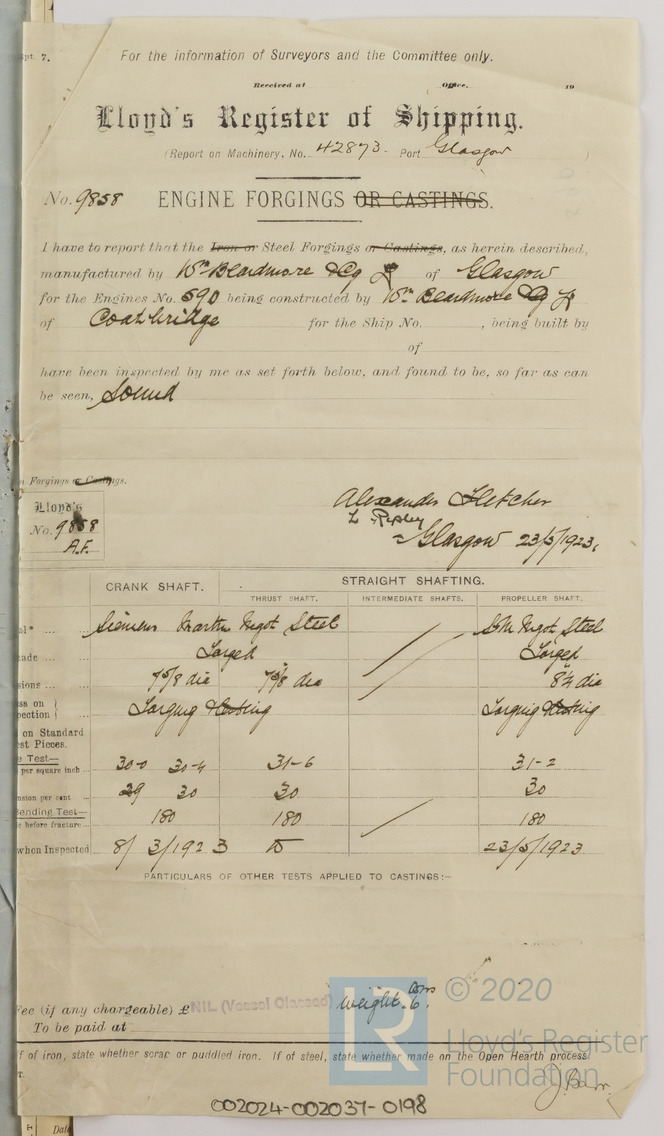 pt. 7.
For the information of Surveyors and the Committee only.
Received at Office, 19
Lloyd's Register of Shipping.
(Report on Machinery, No. 42873. Port Glasgow )
No. 9858 ENGINE FORGINGS OR CASTINGS.
I have to report that the Iron or Steel Forgings or Castings, as herein described,
manufactured by Wm Beardmore & Co Ld of Glasgow
for the Engines No. 590 being constructed by Wm Beardmore & Co Ld
of Coatbridge for the Ship No. , being built by
of
have been inspected by me as set forth below, and found to be, so far as can
be seen, Sound
n Forgings or Castings.
Lloyd's
No. 9858
A.F.
Alexander Fletcher
Glasgow 23/5/1923.
CRANK SHAFT. STRAIGHT SHAFTING.
THRUST SHAFT. INTERMEDIATE SHAFTS. PROPELLER SHAFT.
Siemens Martin Ingot Steel S.M Ingot Steel
ade ... Forged Forged
sions ... 7 5/8 dia 7 5/8 dia 8 1/4 dia
ss on
pection Forging & testing Forging & testing
on Standard
st Pieces.
e Test—
per square inch ... 30-0 30-4 31-6 31-2
nsion per cent ... 29 30 30 30
Bending Test—
le before fracture ... 180 180 180
when Inspected 8/3/1923 23/5/1923
PARTICULARS OF OTHER TESTS APPLIED TO CASTINGS:—
Weight. 6.
Fee (if any chargeable) £ NIL (Vessel Classed)
To be paid at
if of iron, state whether scrap or puddled iron. If of steel, state whether made on the Open Hearth process
T.
002024-002037-0198
LR
© 2020
Lloyd's Register
Foundation
Date